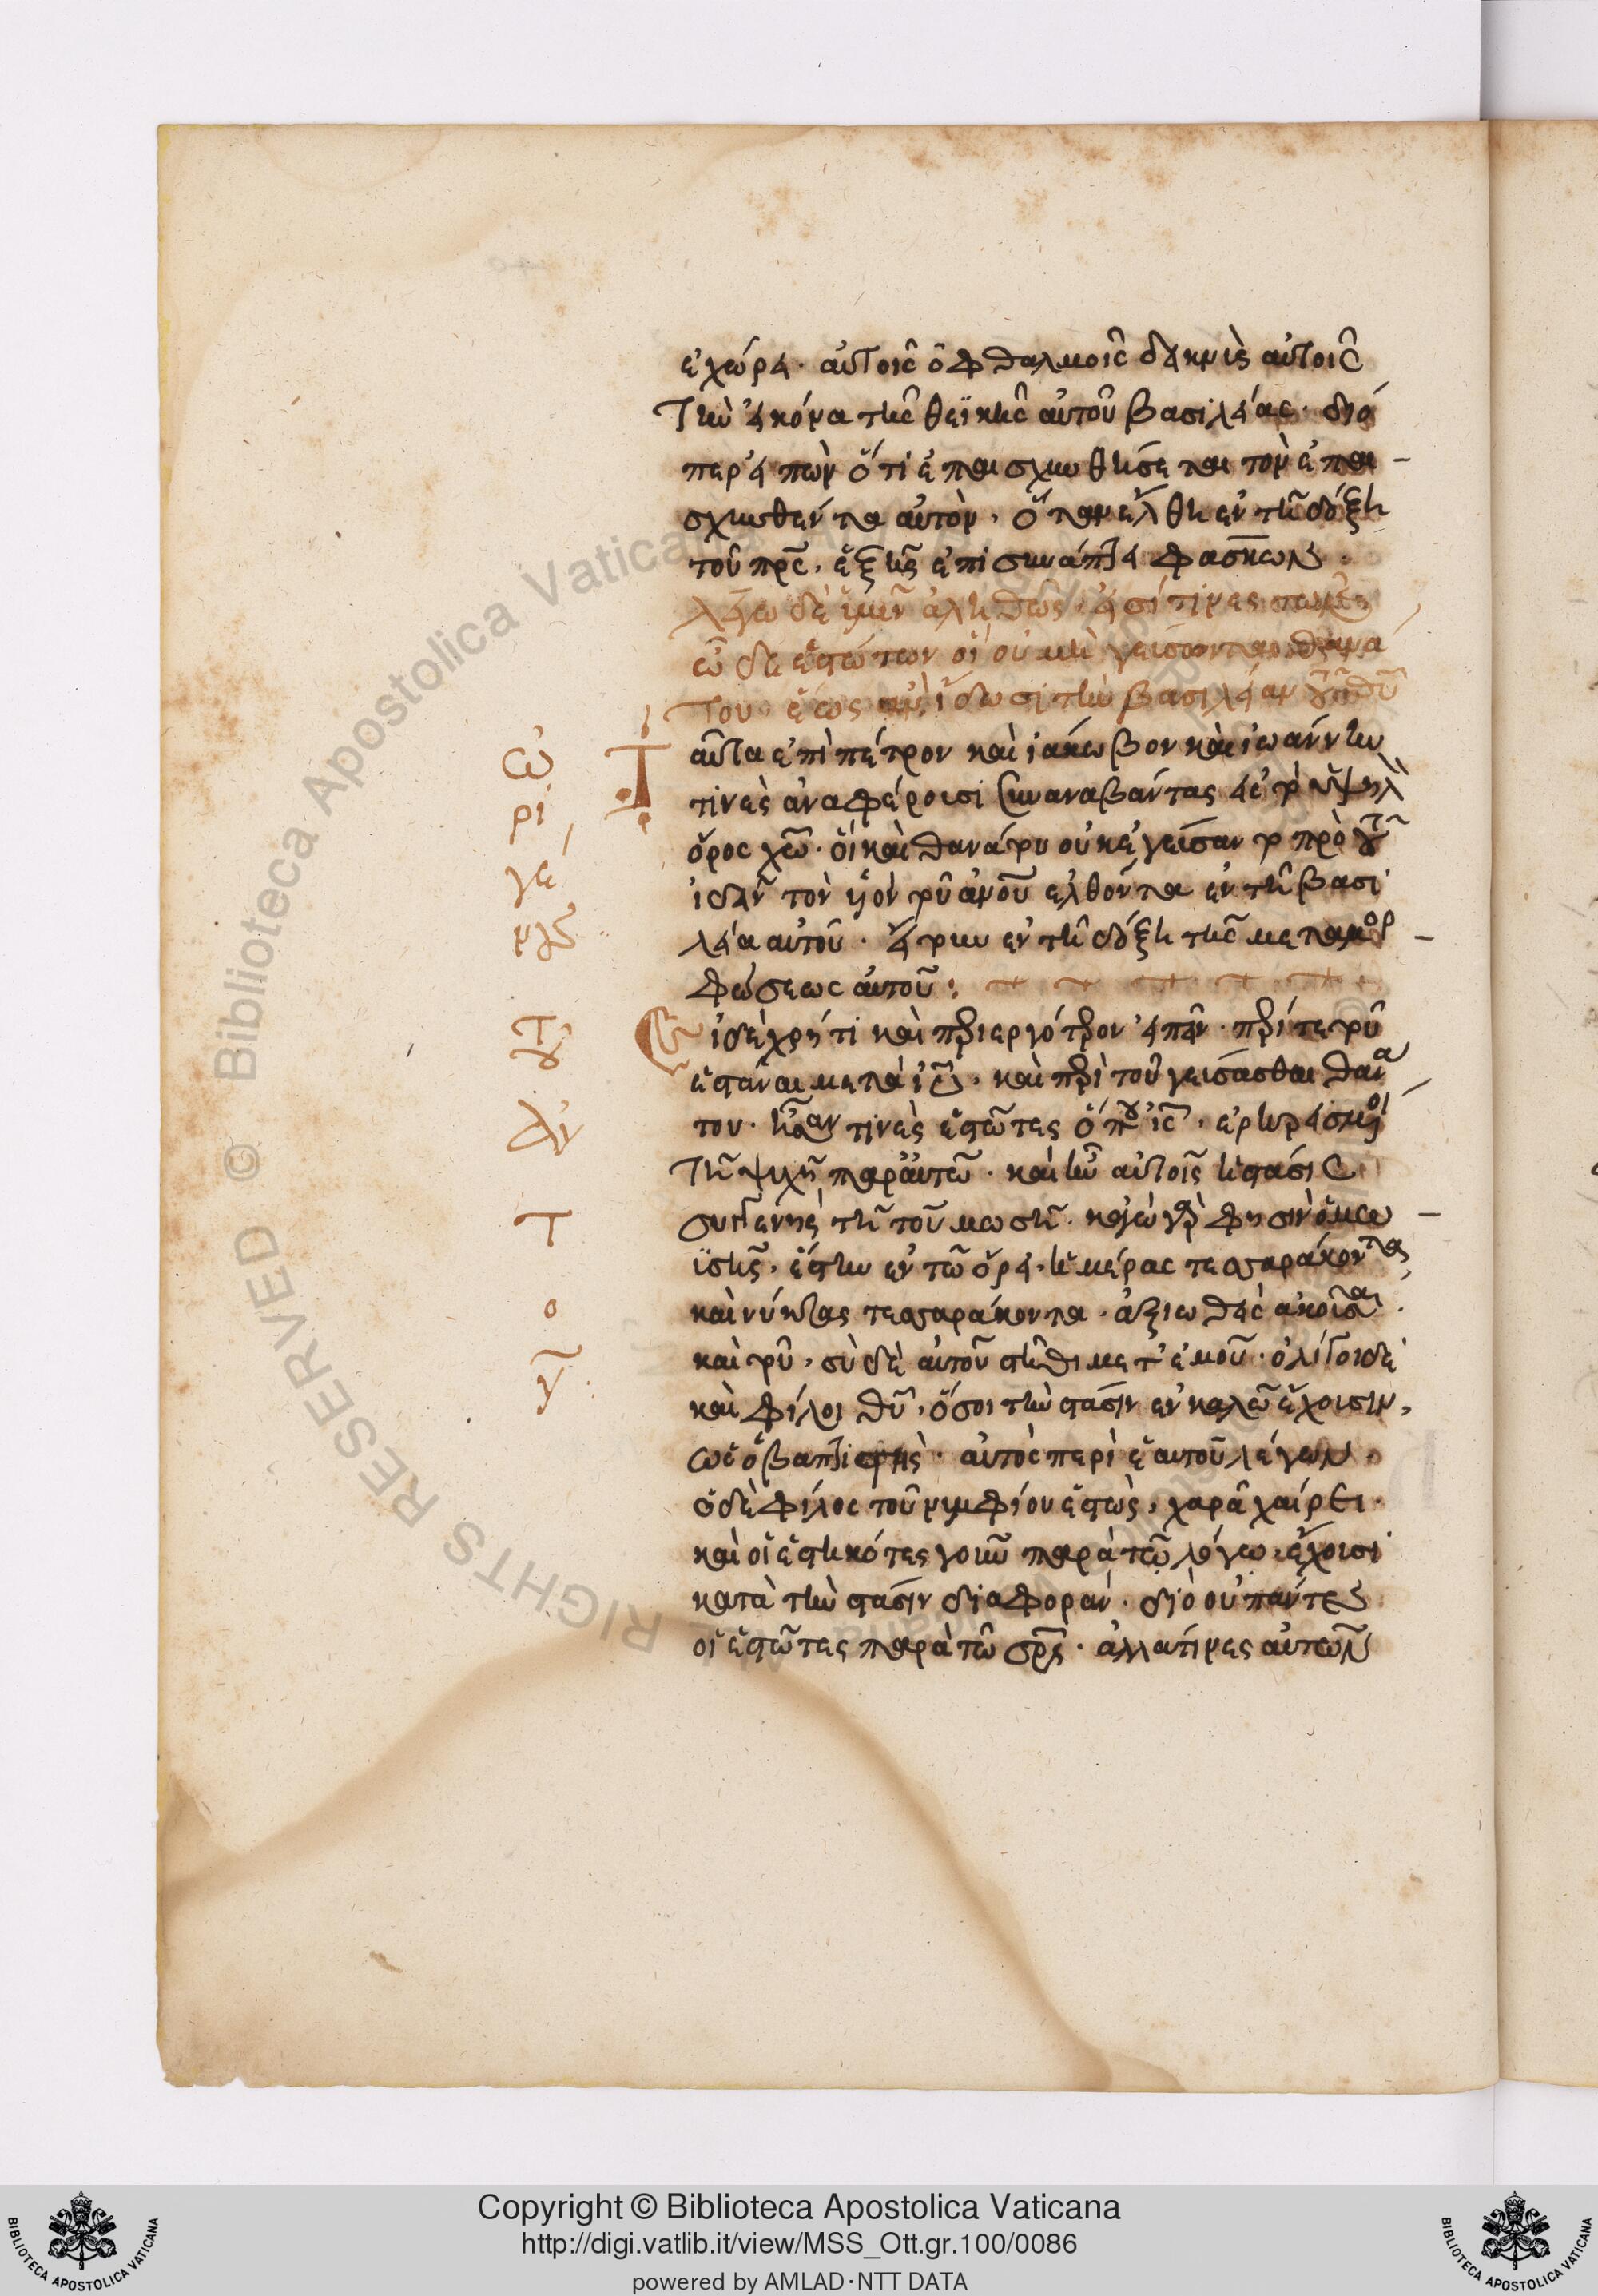 ἐχώρει. αὐτοῖς ὀφθαλμοῖς δεικνὺς αὐτοῖς
τὴν εἰκόνα τῆς θεϊκῆς αὐτοῦ βασιλείας. διό
περ εἰπὼν ὅτι ἐπαισχυνθήσεται τὸν ἐπαι –
σχυνθέντα αὐτὸν, ὅταν ἔλθη ἐν τῇ δόξη
τοῦ πρς, ἑξῆς ἐπισυνάπτει φάσκων.
λέγω δὲ ὑμῖν ἀληθῶς, εἰσί τινες τῶν
ὧδε ἑστώτων οἳ οὐ μὴ γεύσονται θανά
του ἕως ἂν ἴδωσι τὴν βασιλείαν τοῦ θυ
Ταῦτα ἐπὶ πέτρον καὶ ἰάκωβον καὶ ἰωάννην
τινὲς ἀναφέρουσι συναναβάντας εἰς τὸ ὑψηλ
ὄρος χω. οἳ καὶ θανάτου οὐκ ἐγεύσαντο πρὸ τοῦ
ἰδεῖν τὸν υἱὸν τοῦ ἀνου ἐλθόντα ἐν τῇ βασι
λεία αὐτοῦ. ἤτουν ἐν τῇ δόξη τῆς μεταμορ –
φώσεως αὐτοῦ:
Εἰ δὲ χρή τι καὶ περιεργότερον εἰπεῖν. περί τε τοῦ
ἑστάναι μετὰ ιυ, καὶ περὶ τοῦ γεύσασθαι θανά
του. ἦσάν τινὲς ἑστῶτες ὅπου ις, ἐρηρεισμένοι
τῇ ψυχῇ παρ' αὐτῷ. καὶ ἦν αὐτοῖς ἡ στάσις
συγγενὴς τῇ τοῦ μωσῆ. κἀγὼ γάρ φησιν ὁ μω –
ϋσῆς, ἔστην ἐν τῷ ὄρει, ἡμέρας τεσσαράκοντα,
καὶ νύκτας τεσσαράκοντα. ἀξιωθεὶς ἀκοῦσαι
καὶ τοῦ, σὺ δὲ αὐτοῦ στῆθι μετ' ἐμοῦ. ὀλίγοι δὲ
καὶ φίλοι θυ, ὅσοι τὴν στάσιν ἐν καλῷ ἔχουσιν,
ὡς ὁ βαπτιστὴς. αὐτὸς περὶ ἑαυτοῦ λέγων.
ὁ δὲ φίλος τοῦ νυμφίου ἑστὼς, χαρᾷ χαίρει.
καὶ οἱ ἑστηκότες γοῦν παρὰ τῷ λόγω, ἔχουσι
κατὰ τὴν στάσιν διαφοράν. διὸ οὐ πάντες
οἱ ἑστῶτες παρὰ τῷ σρς. ἀλλά τινες αὐτῶν
ὠ
ρι
γέ
νους
του
αὐ
τ
ο
ῦ
Copyright © Biblioteca Apostolica Vaticana
http://digi.vatlib.it/view/MSS_Ott.gr.100/0086
powered by AMLAD·NTT DATA
BIBLIOTECA APOSTOLICA VATICANA
BIBLIOTECA APOSTOLICA VATICANA